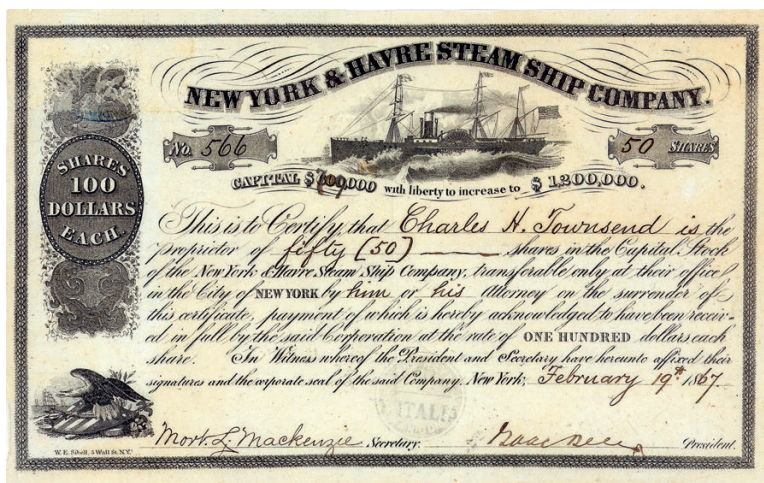 NEW YORK & HAVRE STEAM SHIP COMPANY.
No. 566
50 SHARES
CAPITAL $ 000 with liberty to increase to $ 1,200,000.
SHARES
100
DOLLARS
EACH.
This is to Certify, that Charles H. Townsend is the
proprietor of fifty (50) shares in the Capital Stock
of the New York & Havre Steam Ship Company, transferable only at their office
in the City of NEW YORK by him or his Attorney on the surrender of
this certificate, payment of which is hereby acknowledged to have been receiv-
ed in full by the said Corporation at the rate of ONE HUNDRED dollars each
share. In Witness whereof the President and Secretary have hereunto affixed their
signatures and the corporate seal of the said Company. New York, February 19th 1867
Mort. L. Mackenzie Secretary. President.
W. E. Sibell, 5 Wall St. N.Y.